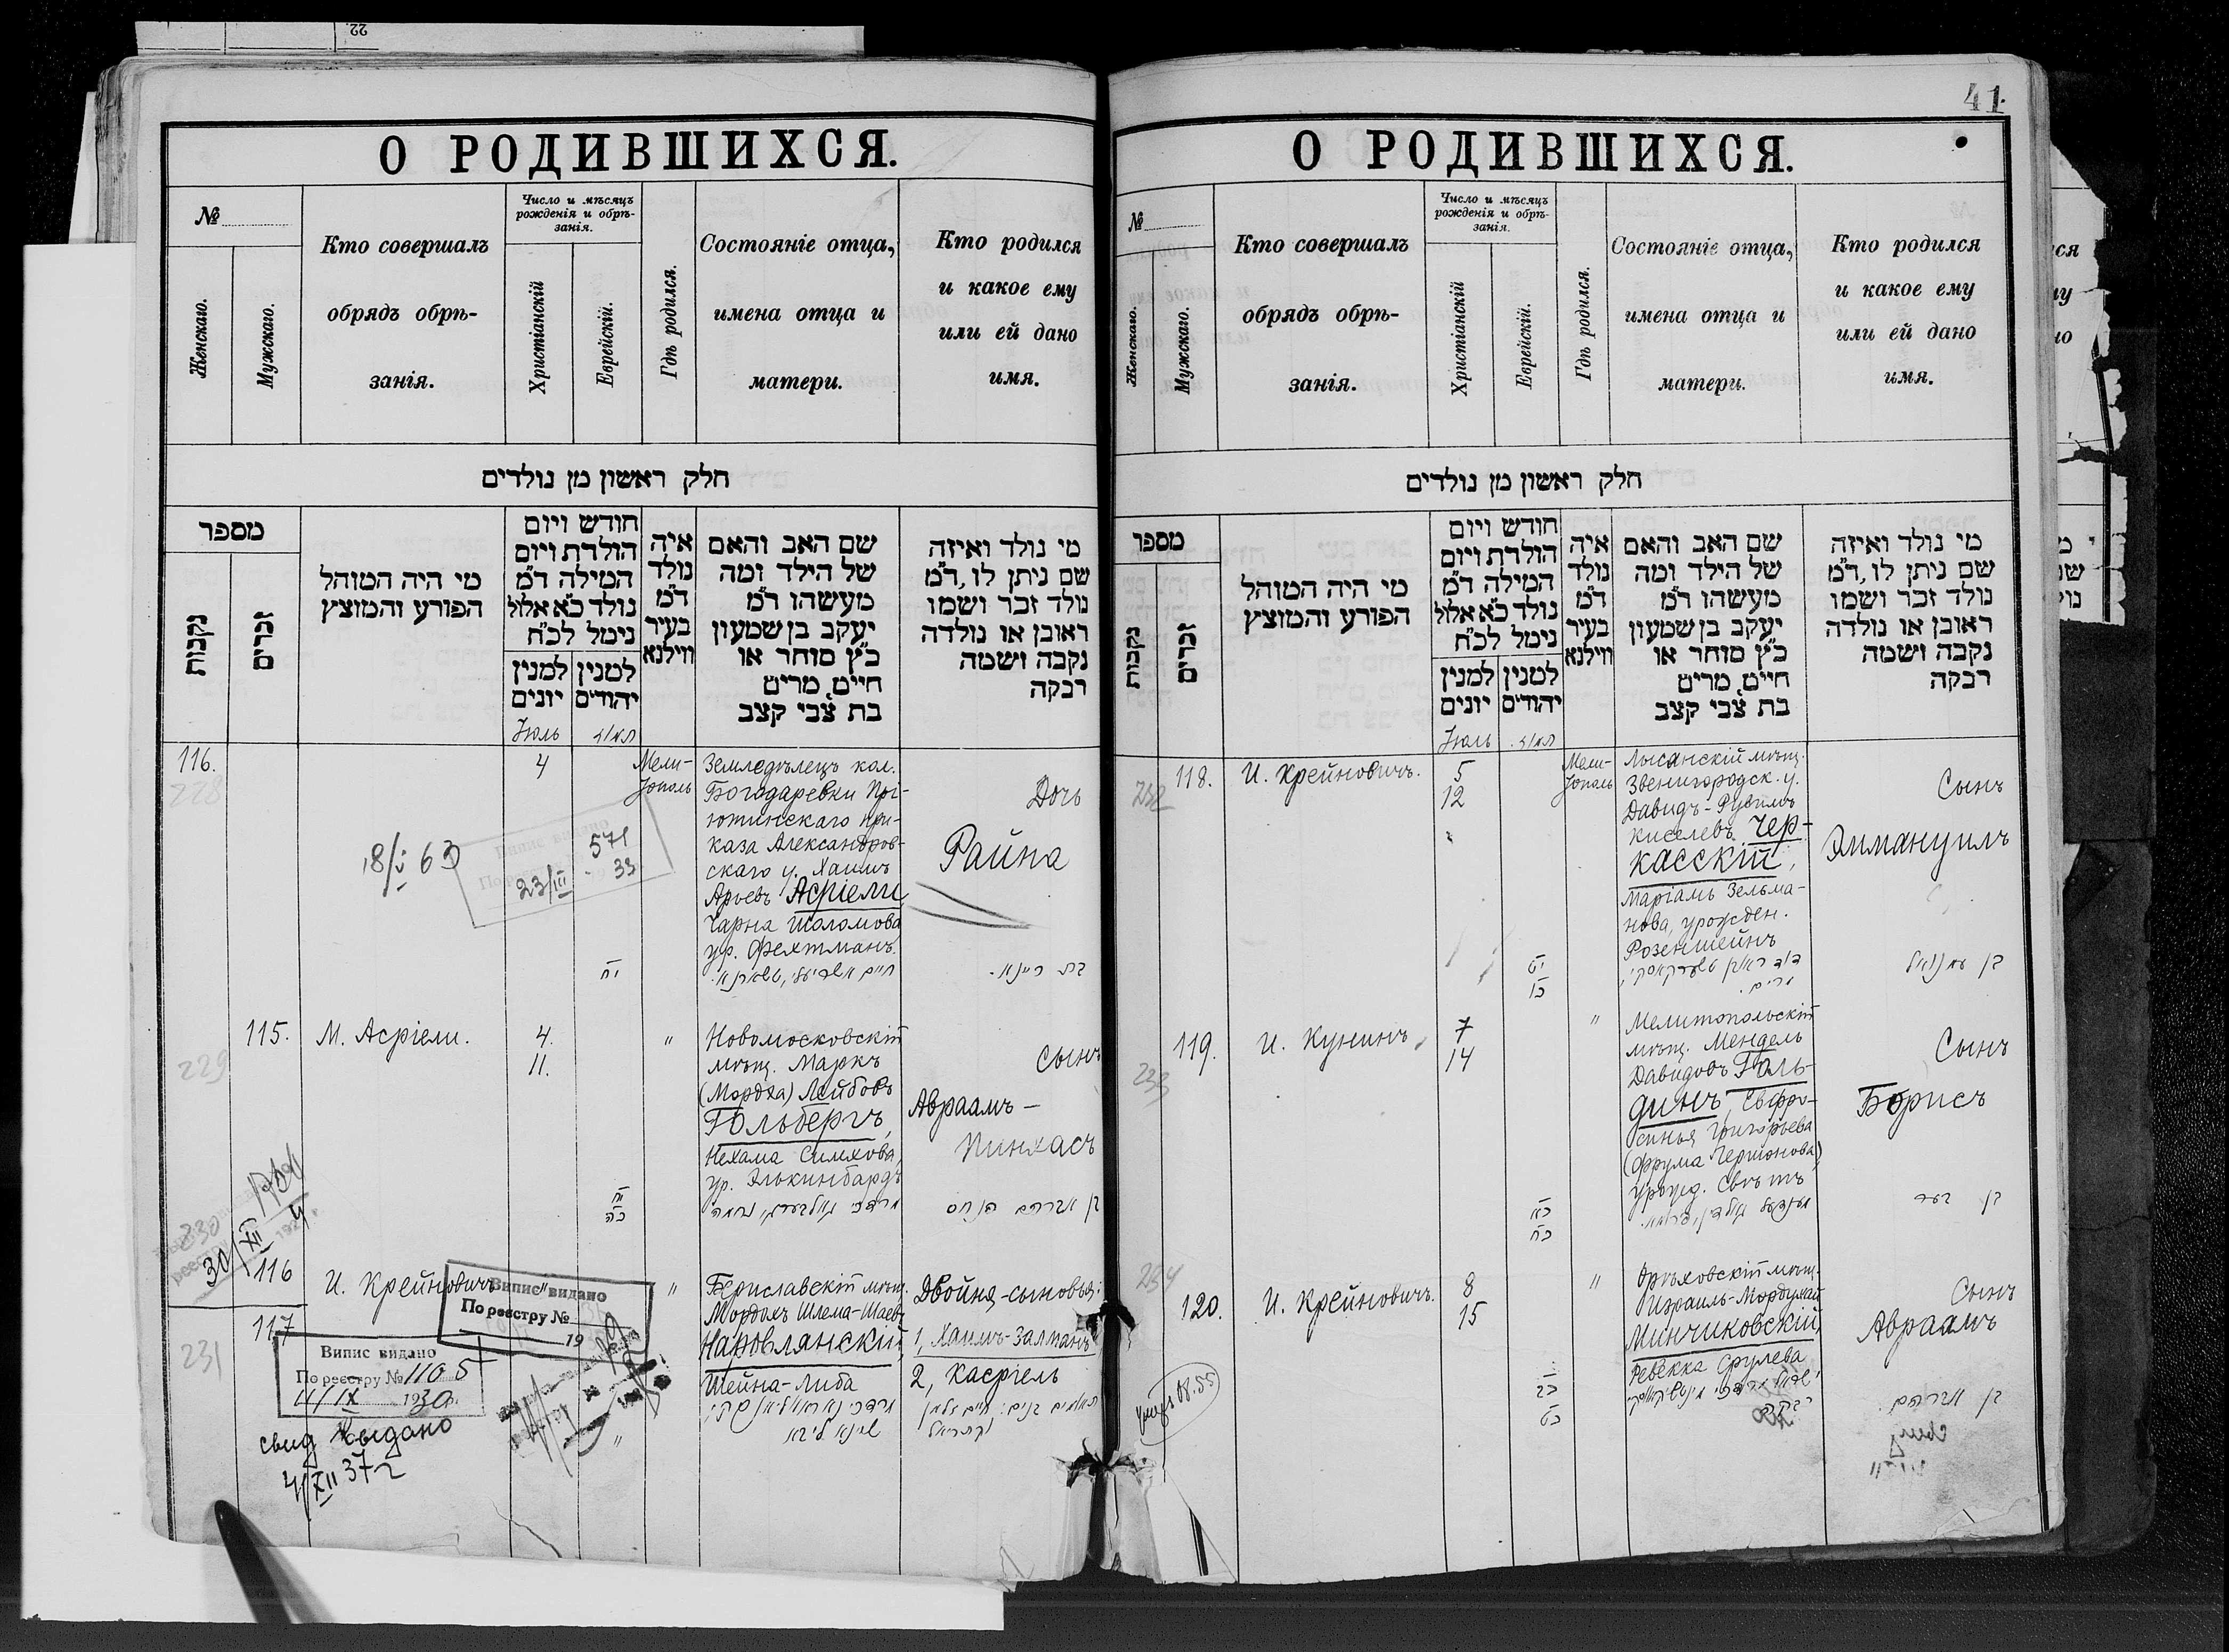 22
О РОДИВШИХСЯ.
№
Женскаго.
Мужскаго.
Кто совершалъ
обрядъ обрѣ-
занія.
Число и мѣсяцъ
рожденія и обрѣ-
занія.
Христіанскій
Еврейскій.
Гдѣ родился.
Состояніе отца,
имена отца и
матери.
Кто родился
и какое ему
или ей дано
имя.
חלק ראשון מן נולדים
מספר
נקבות
זכרים
מי היה המוהל
הפורע והמוצץ
חודש ויום
הולדת ויום
המילה ד״מ
נולד כ״א אלול
נימל לכ״ח
למנין
יונים
למנין
יהודים
איה
נולד
ד״מ
בעיר
ווילנא
שם האב והאם
של הילד ומה
מעשהו ד״מ
יעקב בן שמעון
כ״ץ סוחר או
חייט, מרים
בת צבי קצב
מי נולד ואיזה
שם ניתן לו, ד״מ
נולד זכר ושמו
ראובן או נולדה
נקבה ושמה
רבקה
Іюль
תמוז
116.
228
4
Мели-
тополь
Земледѣлецъ кол.
Богодаревки Прі-
ютинскаго при-
каза Александров-
скаго у. Хаимъ
Арьевъ Асріели,
Чарна Шоломова
ур. Фехтманъ.
Дочь
Райна
18/V 63
571
23/III 33
יח
בת ריינא.
115.
229
М. Асріели.
4.
11.
"
Новомосковскій
мѣщ. Маркъ
(Мордха) Лейбовъ
Гольбергъ,
Нехама Симхова,
ур. Элькинбардъ
Сынъ
Авраамъ-
Пинхасъ
יח
כה
בן אברהם פנחס
230
30/XII
116
117
231
И. Крейновичъ
"
"
Бериславскій мѣщ.
Мордохъ Шлема-Шаевъ
Наровлянскій,
Шейна-Либа
Двойня-сыновья:
1, Хаимъ-Залманъ
2, Касріель
שיינא ליבא
Випис видано
По реєстру №
19
Випис видано
По реєстру № 1105
11/IX 1930 р.
свид выдано
4/XII 37 г
41
О РОДИВШИХСЯ.
№
Женскаго.
Мужскаго.
Кто совершалъ
обрядъ обрѣ-
занія.
Число и мѣсяцъ
рожденія и обрѣ-
занія.
Христіанскій
Еврейскій.
Гдѣ родился.
Состояніе отца,
имена отца и
матери.
Кто родился
и какое ему
или ей дано
имя.
חלק ראשון מן נולדים
מספר
נקבות
זכרים
מי היה המוהל
הפורע והמוצץ
חודש ויום
הולדת ויום
המילה ד״מ
נולד כ״א אלול
נימל לכ״ח
למנין
יונים
למנין
יהודים
איה
נולד
ד״מ
בעיר
ווילנא
שם האב והאם
של הילד ומה
מעשהו ד״מ
יעקב בן שמעון
כ״ץ סוחר או
חייט, מרים
בת צבי קצב
מי נולד ואיזה
שם ניתן לו, ד״מ
נולד זכר ושמו
ראובן או נולדה
נקבה ושמה
רבקה
Іюль
תמוז
232
118.
И. Крейновичъ.
5
12
Мели-
тополь
Лысянскій мѣщ.
Звенигородск. у.
Давидъ-Рувимъ
Киселевъ Чер-
касскій,
Маріамъ Зельма-
нова, урожден.
Розенштейнъ
Сынъ
Эммануилъ
יט
כו
מרים.
בן עמנואל
233
119.
И. Кунинъ.
7
14
"
Мелитопольскій
мѣщ. Мендель
Давидовъ Голь-
динъ, Евфро-
синья Григорьева
(Фрума Гершонова),
урожд.
Сынъ
Борисъ
כא
כח
בן בער
234
120.
И. Крейновичъ.
8
15
"
Орѣховскій мѣщ.
Израиль-Мордухай
Минчиковскій,
Ревекка Срулева
Сынъ
Авраамъ
כב
כט
רבקה
בן אברהם.